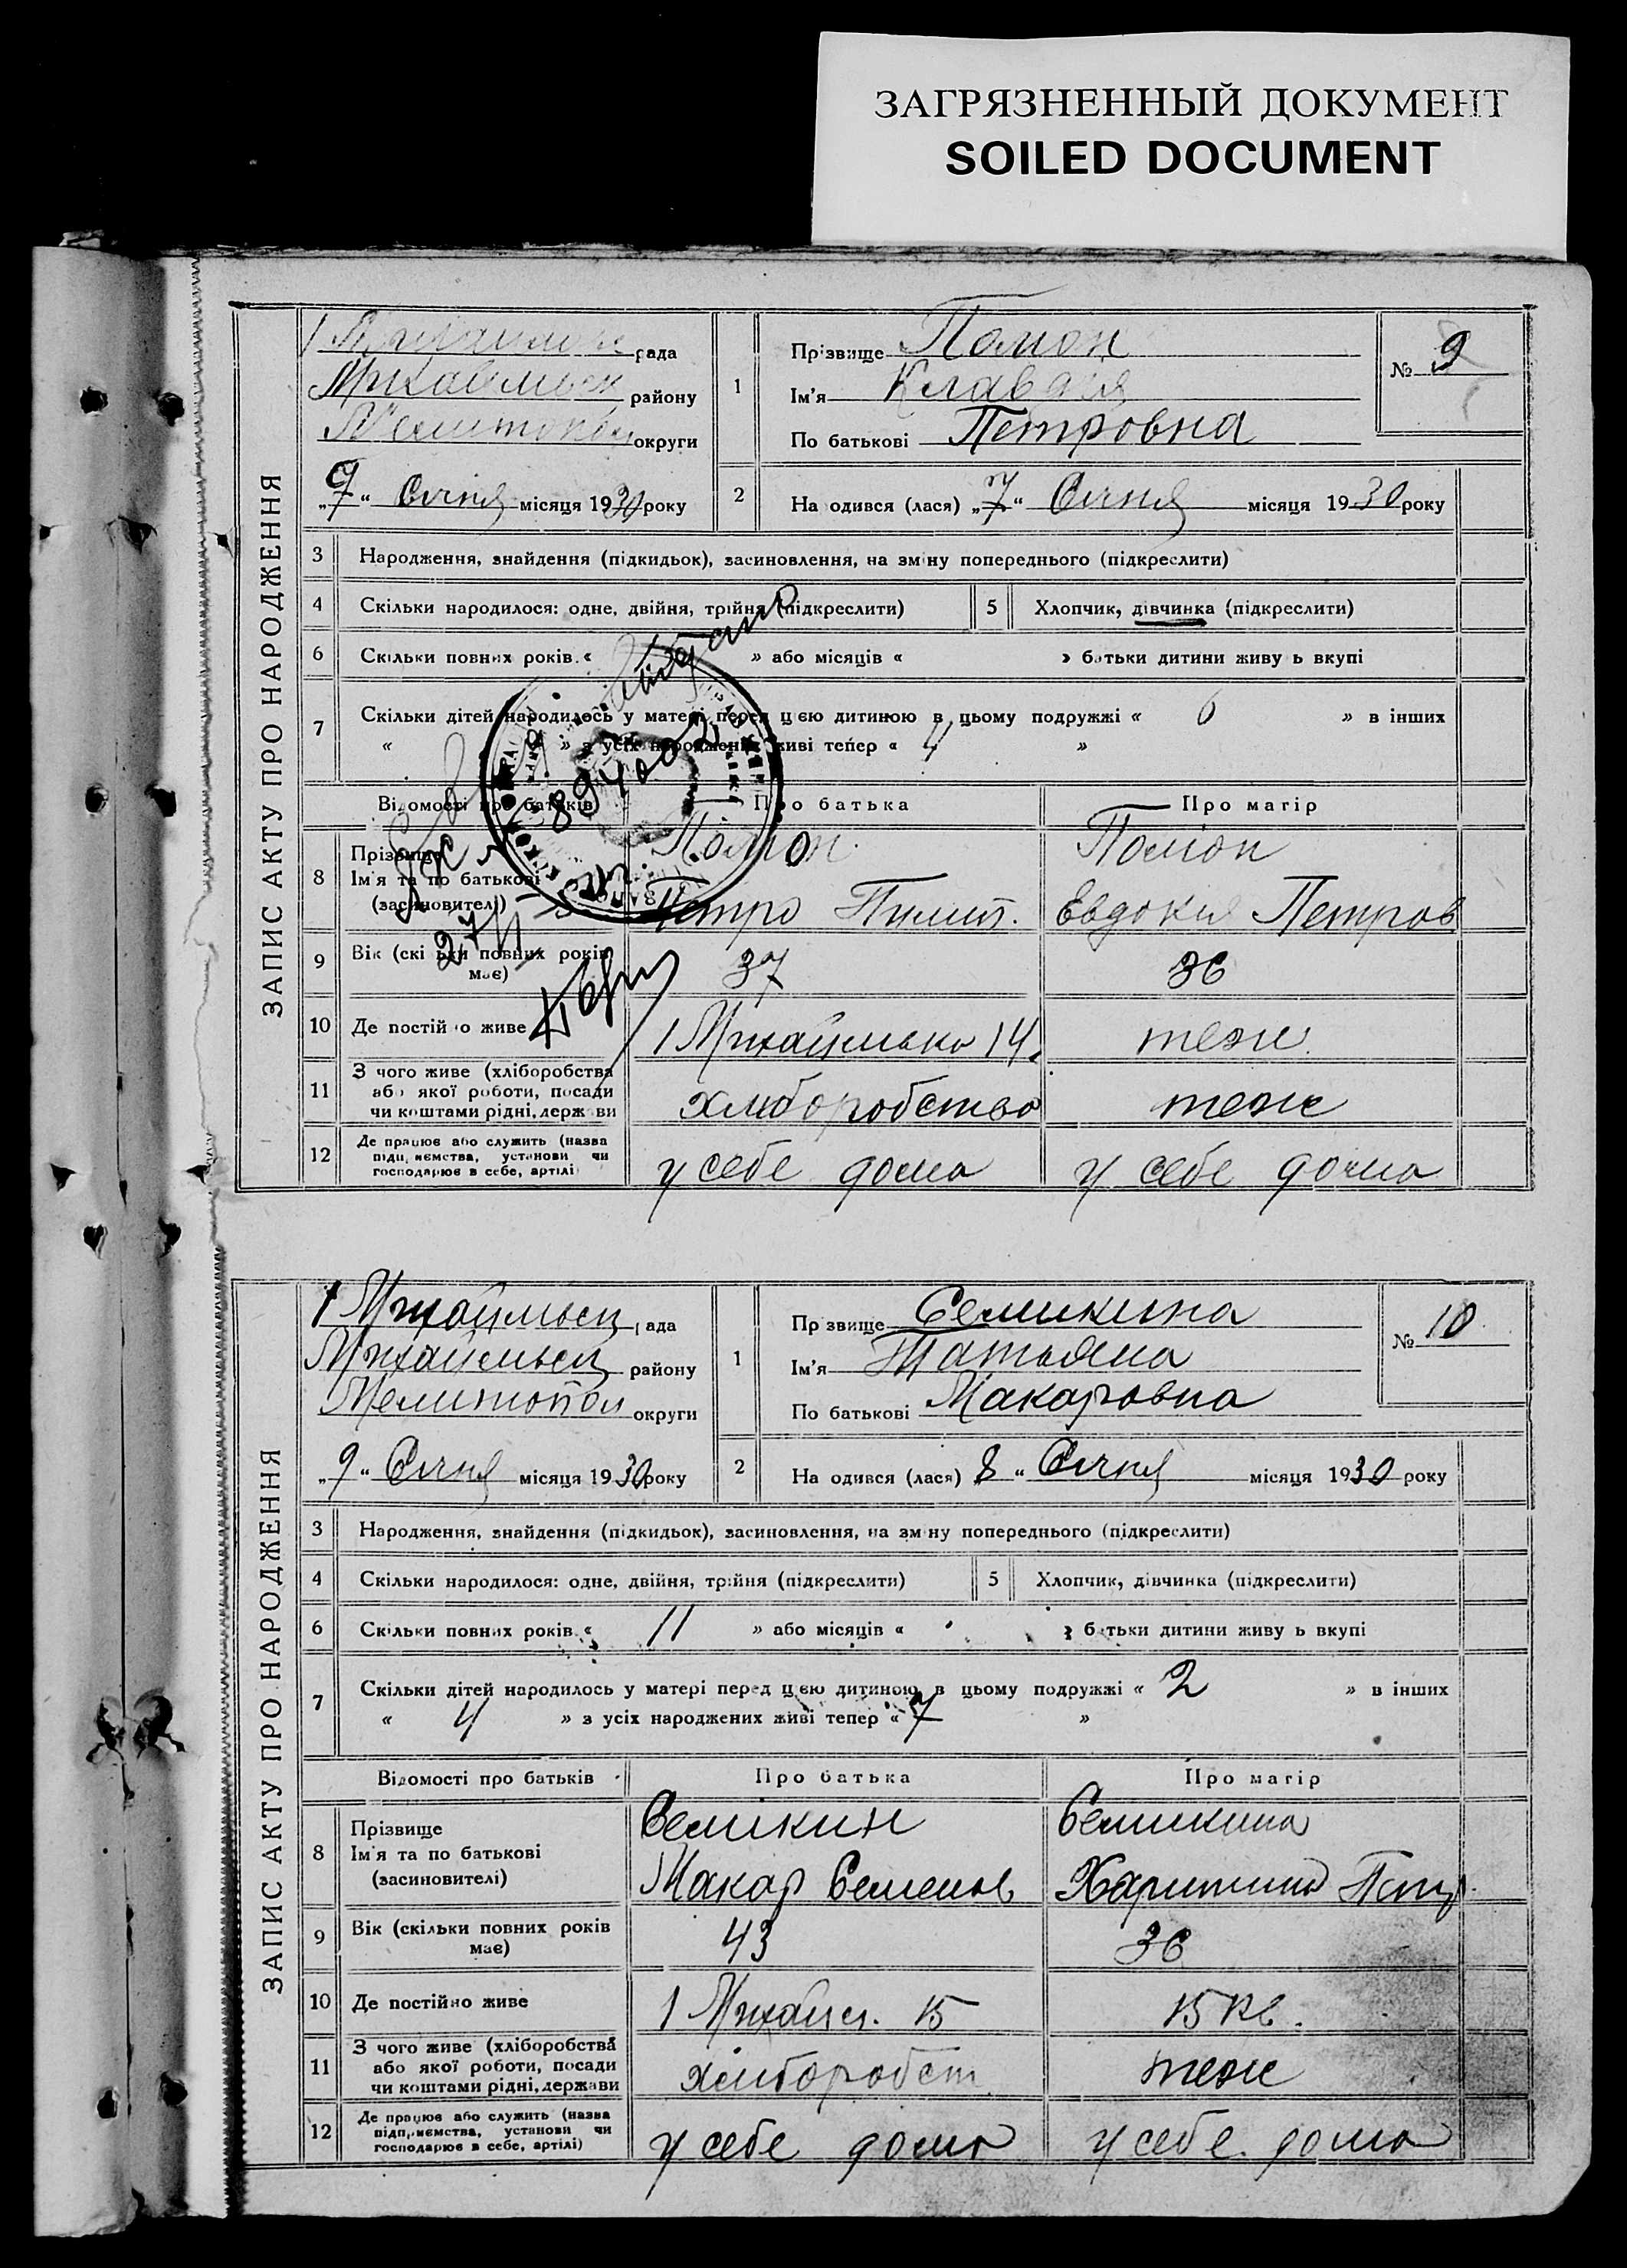 ЗАГРЯЗНЕННЫЙ ДОКУМЕНТ
SOILED DOCUMENT
ЗАПИС АКТУ ПРО НАРОДЖЕННЯ
рада
району
округи
" Січня місяця 1930 року
1
Прізвище
Ім'я Клавдія
По батькові Петровна
№ 9
2
На одився (лася) „7" Січня місяця 1930 року
3 Народження, знайдення (підкидьок), засиновлення, на зміну попереднього (підкреслити)
4 Скільки народилося: одне, двійня, трійня (підкреслити) 5 Хлопчик, дівчинка (підкреслити)
6 Скільки повних років « » або місяців « » батьки дитини живу ь вкупі
7 Скільки дітей народилось у матері перед цією дитиною в цьому подружжі « 6 » в інших
« » з усіх народжених живі тепер « 4 »
Відомості про батьків Про батька Про матір
8 Прізвище
Ім'я та по батькові
(засиновителі)
Петро Пилип. Евдокия Петров
9 Вік (скільки повних років має) 37 36
10 Де постійно живе 1 14. теж
11 З чого живе (хліборобства або якої роботи, посади чи коштами рідні, держави хліборобство теж
12 Де працює або служить (назва підприємства, установи чи господарює в себе, артілі у себе дома у себе дома
ЗАПИС АКТУ ПРО НАРОДЖЕННЯ
1 Михайлівськ рада
Михайлівськ району
Мелитопол округи
„9" Січня місяця 1930 року
1
Пр звище Семикина
Ім'я Татьяна
По батькові Макаровна
№ 10
2
На одився (лася) 8" Січня місяця 1930 року
3 Народження, знайдення (підкидьок), засиновлення, на зміну попереднього (підкреслити)
4 Скільки народилося: одне, двійня, трійня (підкреслити) 5 Хлопчик, дівчинка (підкреслити)
6 Скільки повних років « 11 » або місяців « » батьки дитини живу ь вкупі
7 Скільки дітей народилось у матері перед цією дитиною в цьому подружжі « 2 » в інших
« 4 » з усіх народжених живі тепер « 7 »
Відомості про батьків Про батька Про матір
8 Прізвище
Ім'я та по батькові
(засиновителі)
Семікин Семикина
Макар Семенов Харитина Петр.
9 Вік (скільки повних років має) 43 36
10 Де постійно живе 1 Михайл. 15 15 кв.
11 З чого живе (хліборобства або якої роботи, посади чи коштами рідні, держави хліборобст теж
12 Де працює або служить (назва підприємства, установи чи господарює в себе, артілі) у себе дома у себе дома